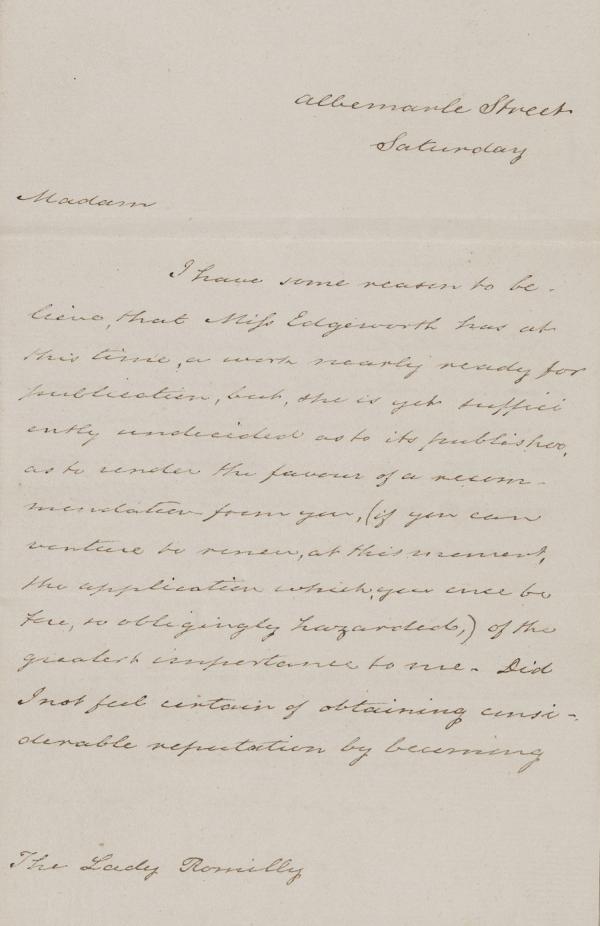 Albemarle Street
Saturday
Madam
I have some reason to be-
lieve, that Miss Edgeworth has at
this time, a work nearly ready for
publication, but, she is yet suffici
ently undecided as to its publisher,
as to render the favour of a recom-
mendation from you, (if you can
venture to renew, at this moment,
the application which you once be
fore, so obligingly hazarded,) of the
greatest importance to me - Did
I not feel certain of obtaining consi-
derable reputation by becoming
The Lady Romilly